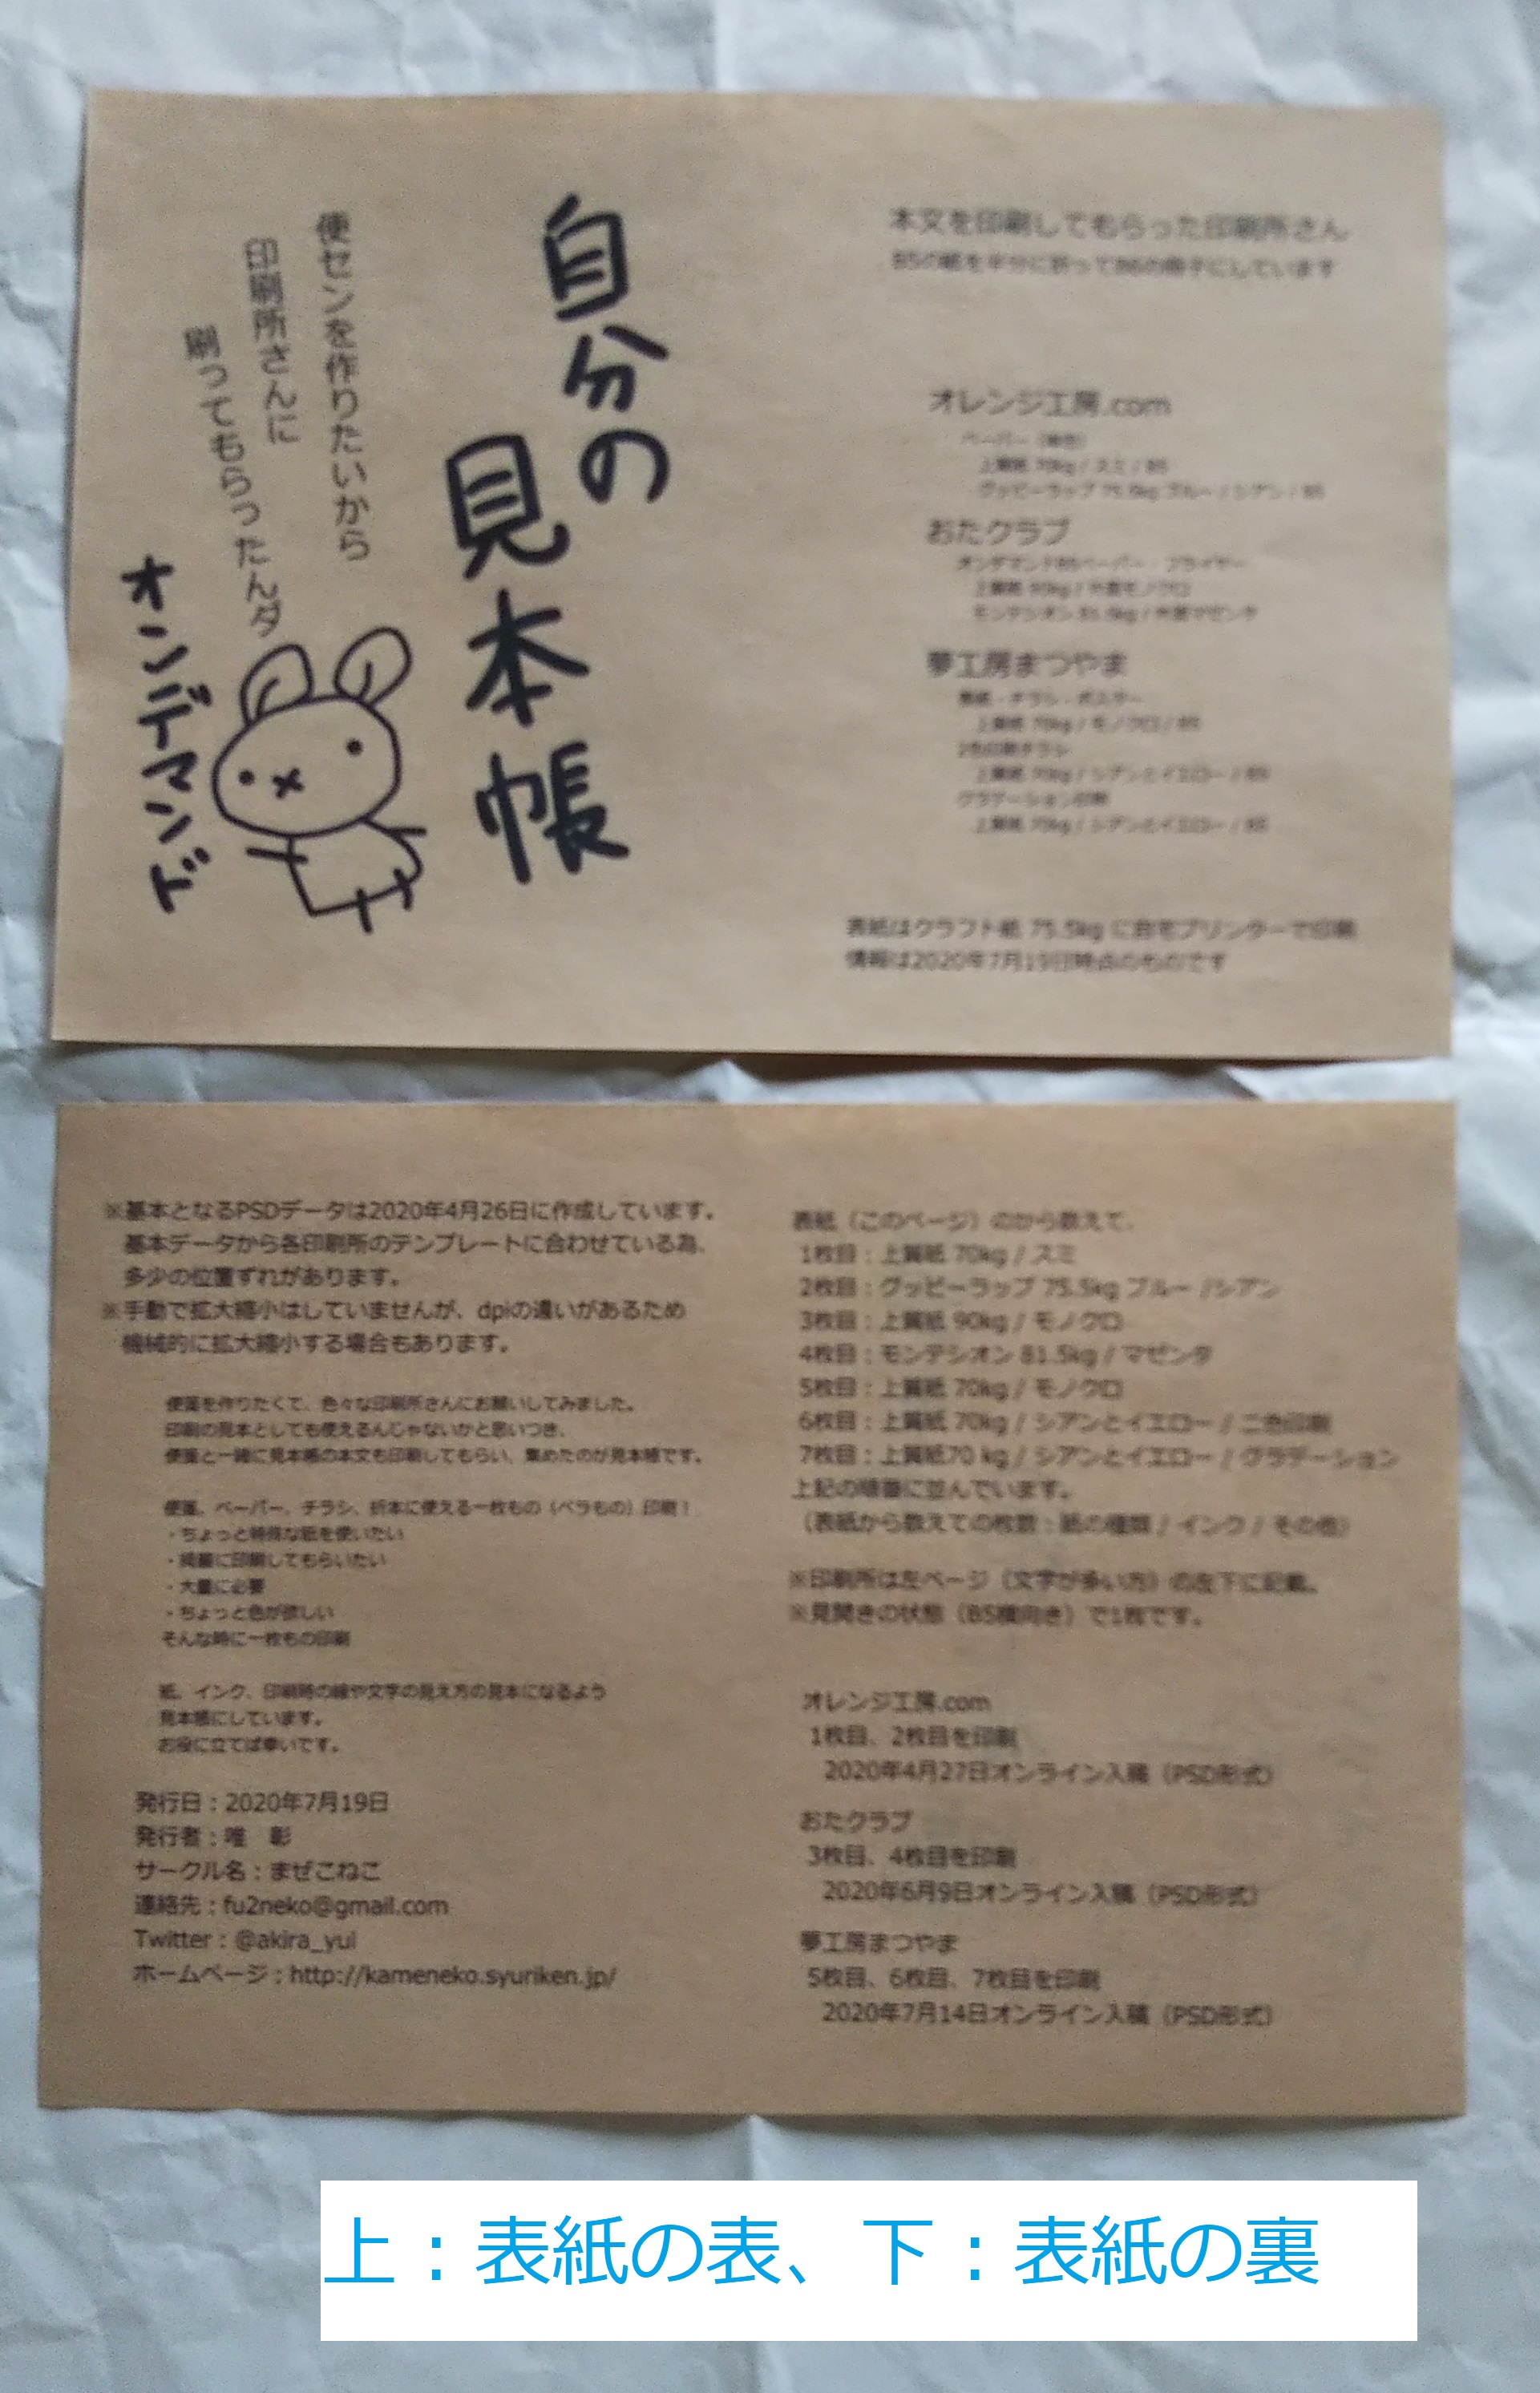 自分の
見本帳
便センを作りたいから
印刷所さんに
刷ってもらったんダ
オンデマンド
本文を印刷してもらった印刷所さん
B5の紙を半分に折ってB6の冊子にしています
オレンジ工房.com
上質紙 70kg / スミ / B5
グッピーラップ 75.5kg ブルー / シアン / B5
おたクラブ
オンデマンドB5ペーパー・フライヤー
上質紙 90kg / 片面モノクロ
モンテシオン 81.5kg / 片面マゼンタ
夢工房まつやま
表紙・チラシ・ポスター
上質紙 70kg / モノクロ / B5
2色印刷チラシ
上質紙 70kg / シアンとイエロー / B5
グラデーション印刷
上質紙 70kg / シアンとイエロー / B5
表紙はクラフト紙 75.5kg に自宅プリンターで印刷
情報は2020年7月19日時点のものです
※基本となるPSDデータは2020年4月26日に作成しています。
基本データから各印刷所のテンプレートに合わせている為、
多少の位置ずれがあります。
※手動で拡大縮小はしていませんが、dpiの違いがあるため
機械的に拡大縮小する場合もあります。
便箋を作りたくて、色々な印刷所さんにお願いしてみました。
印刷の見本としても使えるんじゃないかと思いつき、
便箋と一緒に見本帳の本文も印刷してもらい、集めたのが見本帳です。
便箋、ペーパー、チラシ、折本に使える一枚もの（ペラもの）印刷！
・ちょっと特殊な紙を使いたい
・綺麗に印刷してもらいたい
・大量に必要
・ちょっと色が欲しい
そんな時に一枚もの印刷
紙、インク、印刷時の線や文字の見え方の見本になるよう
見本帳にしています。
お役に立てば幸いです。
発行日：2020年7月19日
発行者：唯　彰
サークル名：まぜこねこ
連絡先：fu2neko@gmail.com
Twitter：@akira_yui
ホームページ：http://kameneko.syuriken.jp/
表紙（このページ）のから数えて、
1枚目：上質紙 70kg / スミ
2枚目：グッピーラップ 75.5kg ブルー /シアン
3枚目：上質紙 90kg / モノクロ
4枚目：モンテシオン 81.5kg / マゼンタ
5枚目：上質紙 70kg / モノクロ
6枚目：上質紙 70kg / シアンとイエロー / 二色印刷
7枚目：上質紙70 kg / シアンとイエロー / グラデーション
上記の順番に並んでいます。
（表紙から数えての枚数：紙の種類 / インク / その他）
※印刷所は左ページ（文字が多い方）の左下に記載。
※見開きの状態（B5横向き）で1枚です。
オレンジ工房.com
1枚目、2枚目を印刷
2020年4月27日オンライン入稿（PSD形式）
おたクラブ
3枚目、4枚目を印刷
2020年6月9日オンライン入稿（PSD形式）
夢工房まつやま
5枚目、6枚目、7枚目を印刷
2020年7月14日オンライン入稿（PSD形式）
上：表紙の表、下：表紙の裏